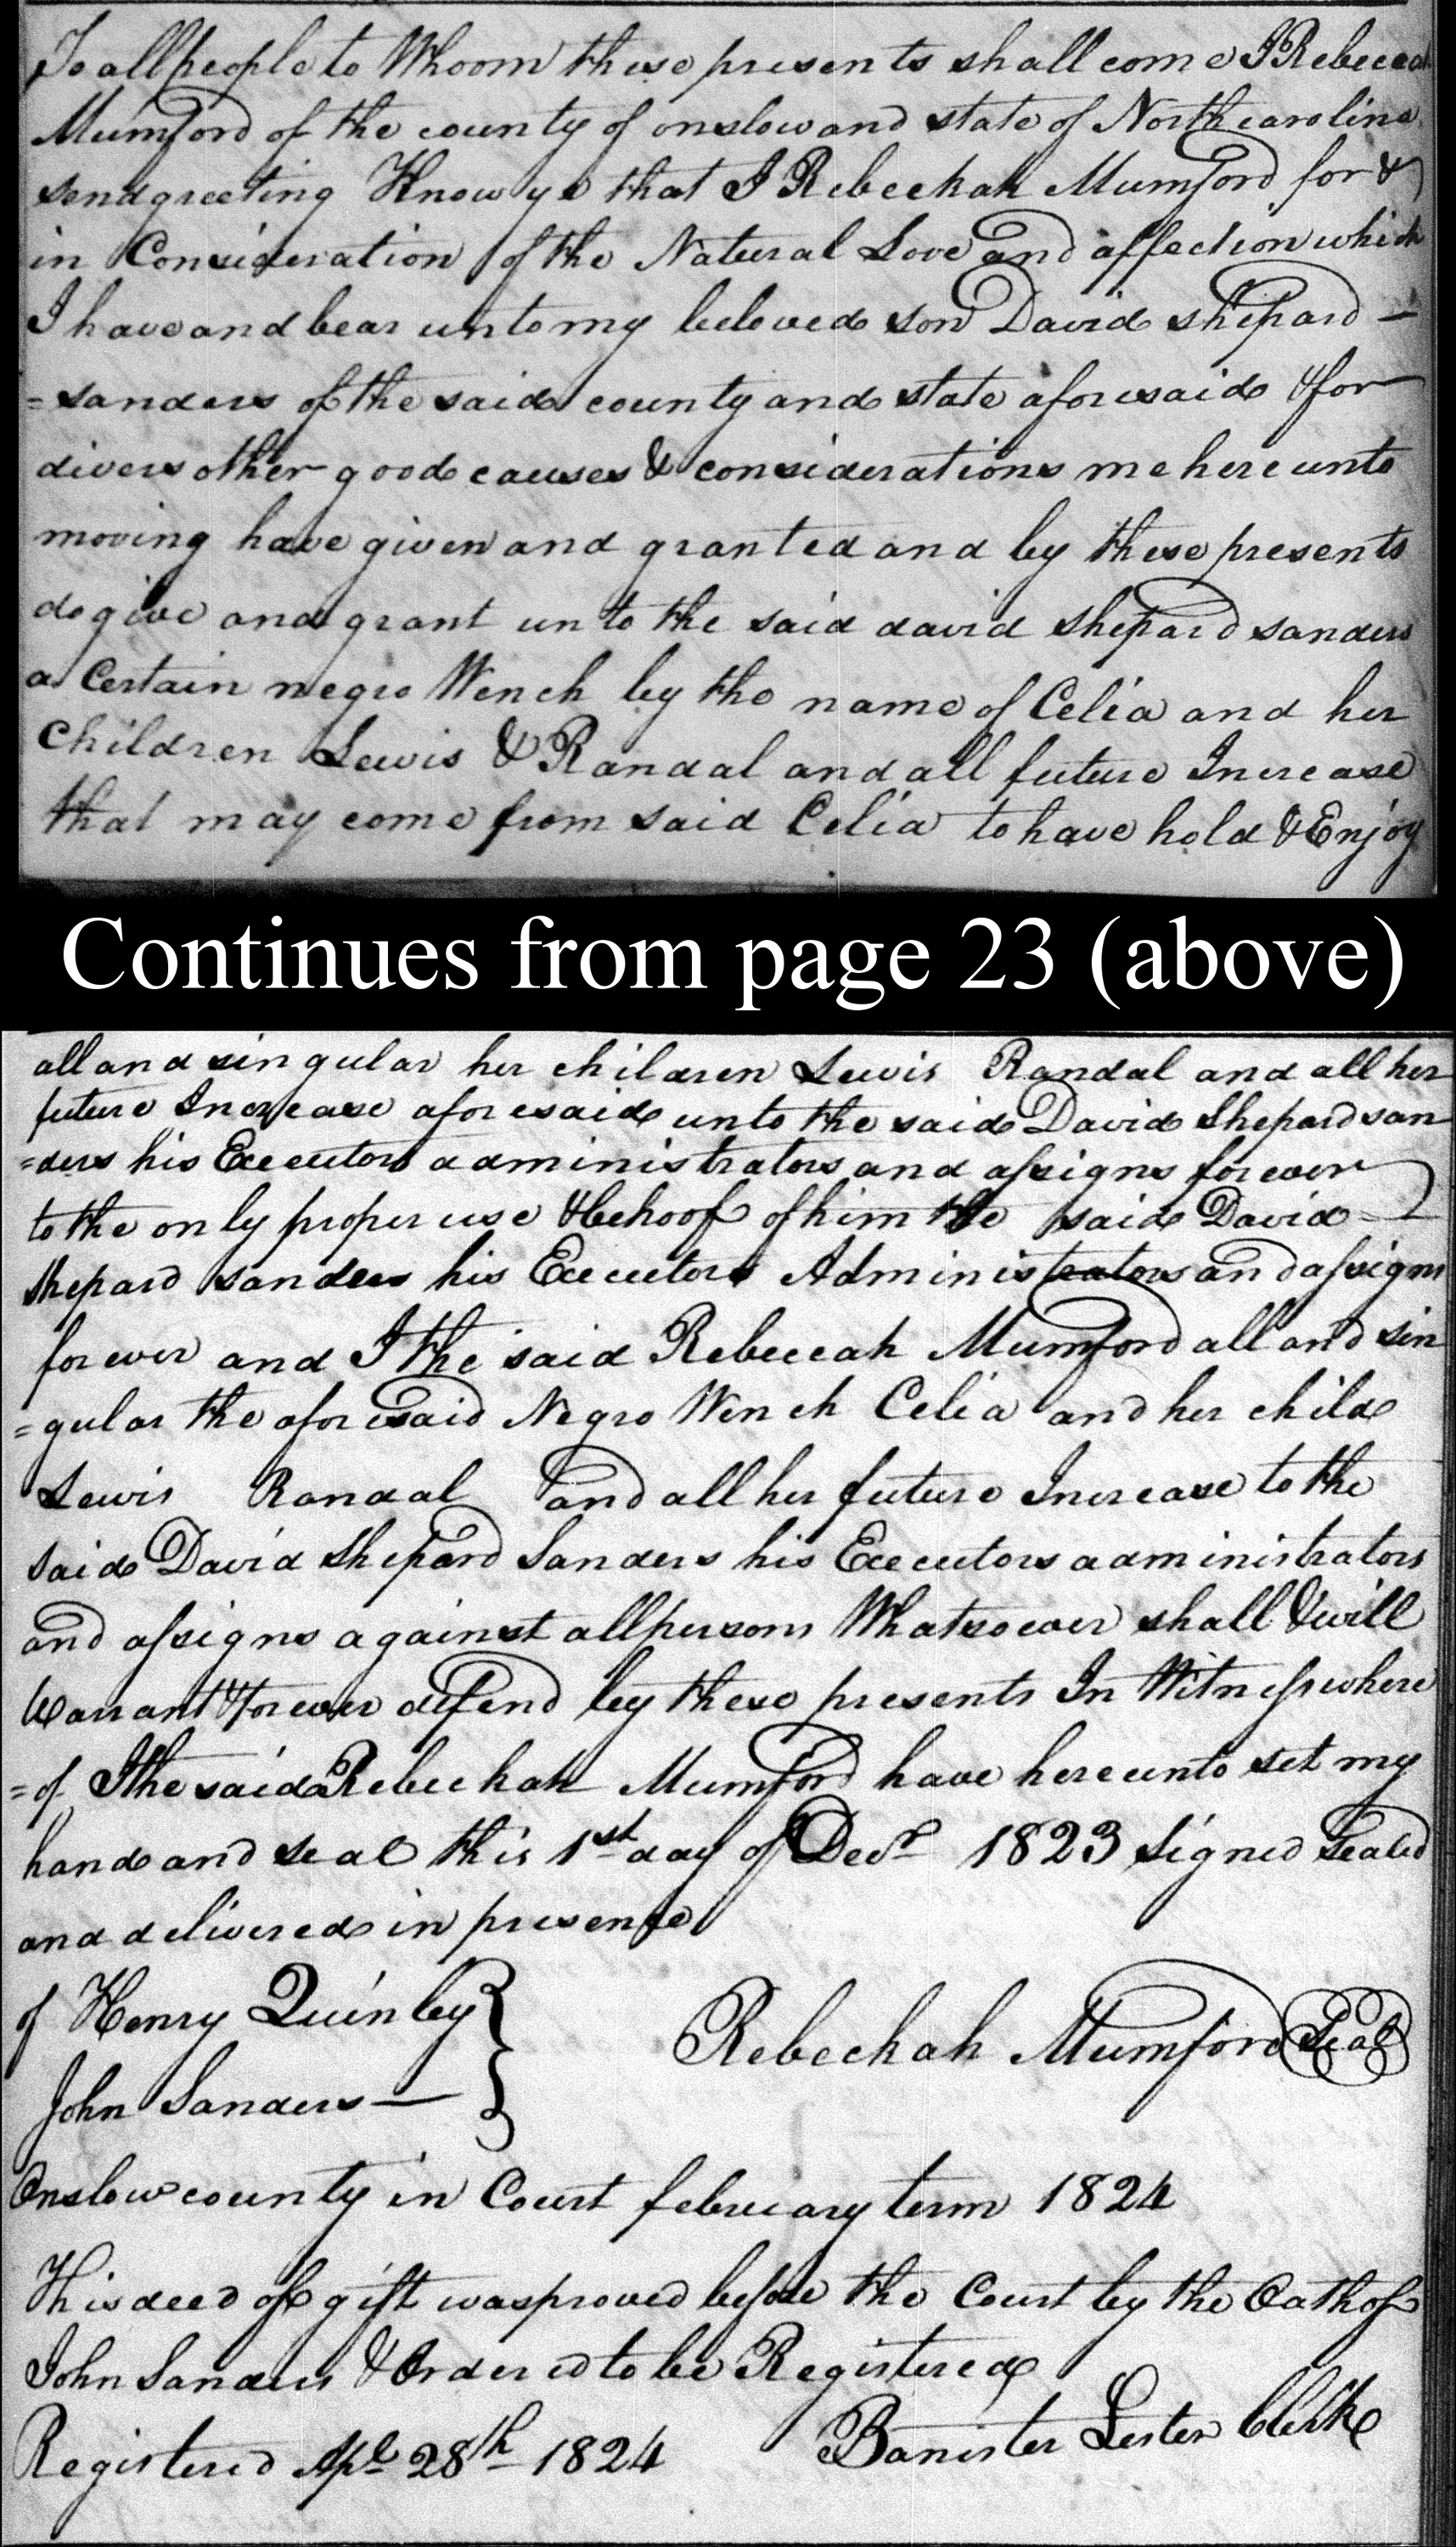 To all people to Whoom these presents shall come I Rebeccah
Mumford of the county of onslow and state of North carolina
send greeting Know ye that I Rebeckah Mumford for &
in Consideration of the Natural Love and affection which
I have and bear unto my beloved son David shepard —
=sanders of the said county and state aforesaid & for
divers other good causes & considerations me here unto
moving have given and granted and by these presents
do give and grant unto the said david shepard sanders
a Certain negro Wench by the name of Celia and her
Children Lewis & Randal and all future Increase
that may come from said Celia to have hold & Enjoy
Continues from page 23 (above)
all and singular her children Lewis Randal and all her
future Increase aforesaid unto the said David Shepard san
=ders his Executors administrators and assigns forever
to the only proper use & behoof of him the said David
Shepard sanders his Executors Administrators and assigns
forever and I the said Rebeccah Mumford all and sin
=gular the aforesaid Negro Wench Celia and her child
Lewis Randal and all her future Increase to the
said David Shepard Sanders his Executors administrators
and assigns against all persons Whatsoever shall & will
Warrant & forever defend by these presents In Witness where
=of I the said Rebeckah Mumford have hereunto set my
hand and seal this 1st day of Decr 1823 Signed Sealed
and delivered in presence
of Henry Quinley
Rebeckah Mumford Seal
John Sanders —
Onslow county in Court february term 1824
This deed of gift was proved before the Court by the Oath of
John Sanders & Ordered to be Registered
Banister Lester Clerk
Registered Apl 28th 1824